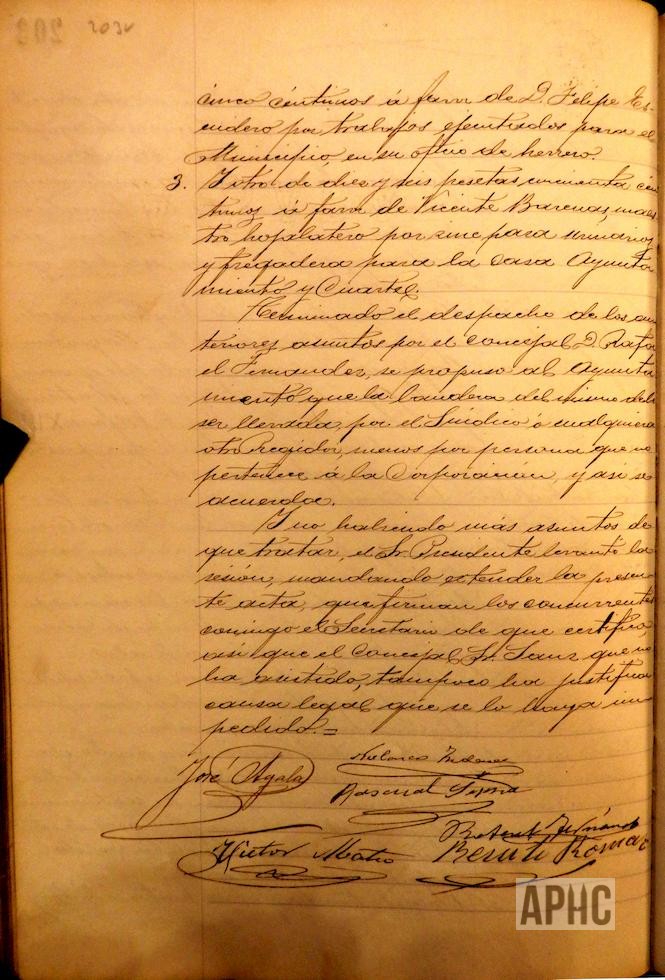 203v
cinco céntimos á favor de D. Felipe Es-
cudero por trabajos ejecutados para el
Municipio, en su oficio de herrero.
3. Y otro de diez y seis pesetas cincuenta cén
timos á favor de Vicente Barenas, maes
tro hojalatero por zinc para urinarios
y fregadera para la casa Ayunta
miento y Cuartel.
Terminado el despacho de los an
teriores asuntos por el concejal D. Rafa
el Fernandez, se propuso al Ayunta
miento que la bandera del mismo debe
ser llevada, por el Síndico ó cualquiera
otro Regidor, menos por persona que no
pertenece á la Corporación, y asi se
acuerda.
Y no habiendo más asuntos de
que tratar, el Sr. Presidente levantó la
sesión, mandando estender la presen
te acta, que firman los concurrentes
conmigo el Secretario de que certifico,
asi que el concejal Sr. Sanz que no
ha asistido, tampoco ha justifica
causa legal que se lo haya im
pedido.=
José Ayala
Pascual
Victor Mateo
Benito Roman
APHC